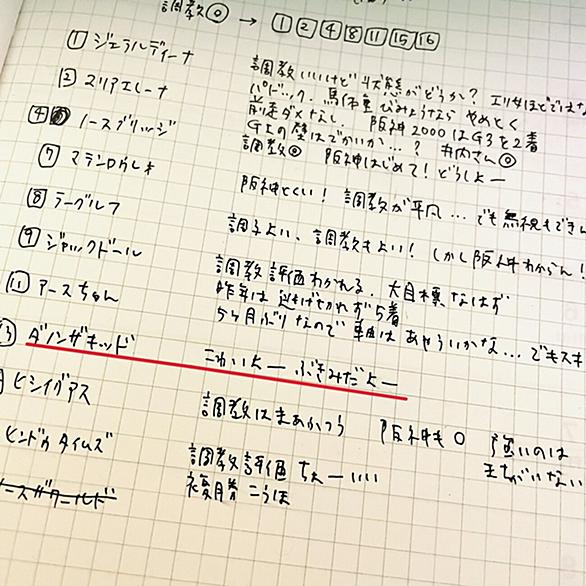 調教◎ → ① ② ④ ⑧ ⑪ ⑮ ⑯
① ジェラルディーナ
調教いいけど状態がどうか? エリ女ほどでは
パドック、馬体重びみょうなら やめとく
② マリアエレーナ
前走ダメなし、阪神2000はG3を2着
GIの壁はでかいか…? 井内さん◎
④ ノースブリッジ
調教◎ 阪神はじめて! どうしよー
⑦ マテンロウレオ
阪神とくい! 調教が平凡… でも無視もでき
⑧ ラーグルフ
調子よい、調教もよい! しかし阪神わからん!
⑨ ジャックドール
調教評価わかれる、大目標なはず
昨年は逃げきれず5着
⑪ アースちゃん
5ヶ月ぶりなので軸はあやういかな… でもスキ
ダノンザキッド
こわいよー ぶきみだよー
ヒシイグアス
調教はまあかつう 阪神も○ 強いのは
まちがいない
ヒンドゥタイムズ
調教評価ちょーいい
複勝こうほ